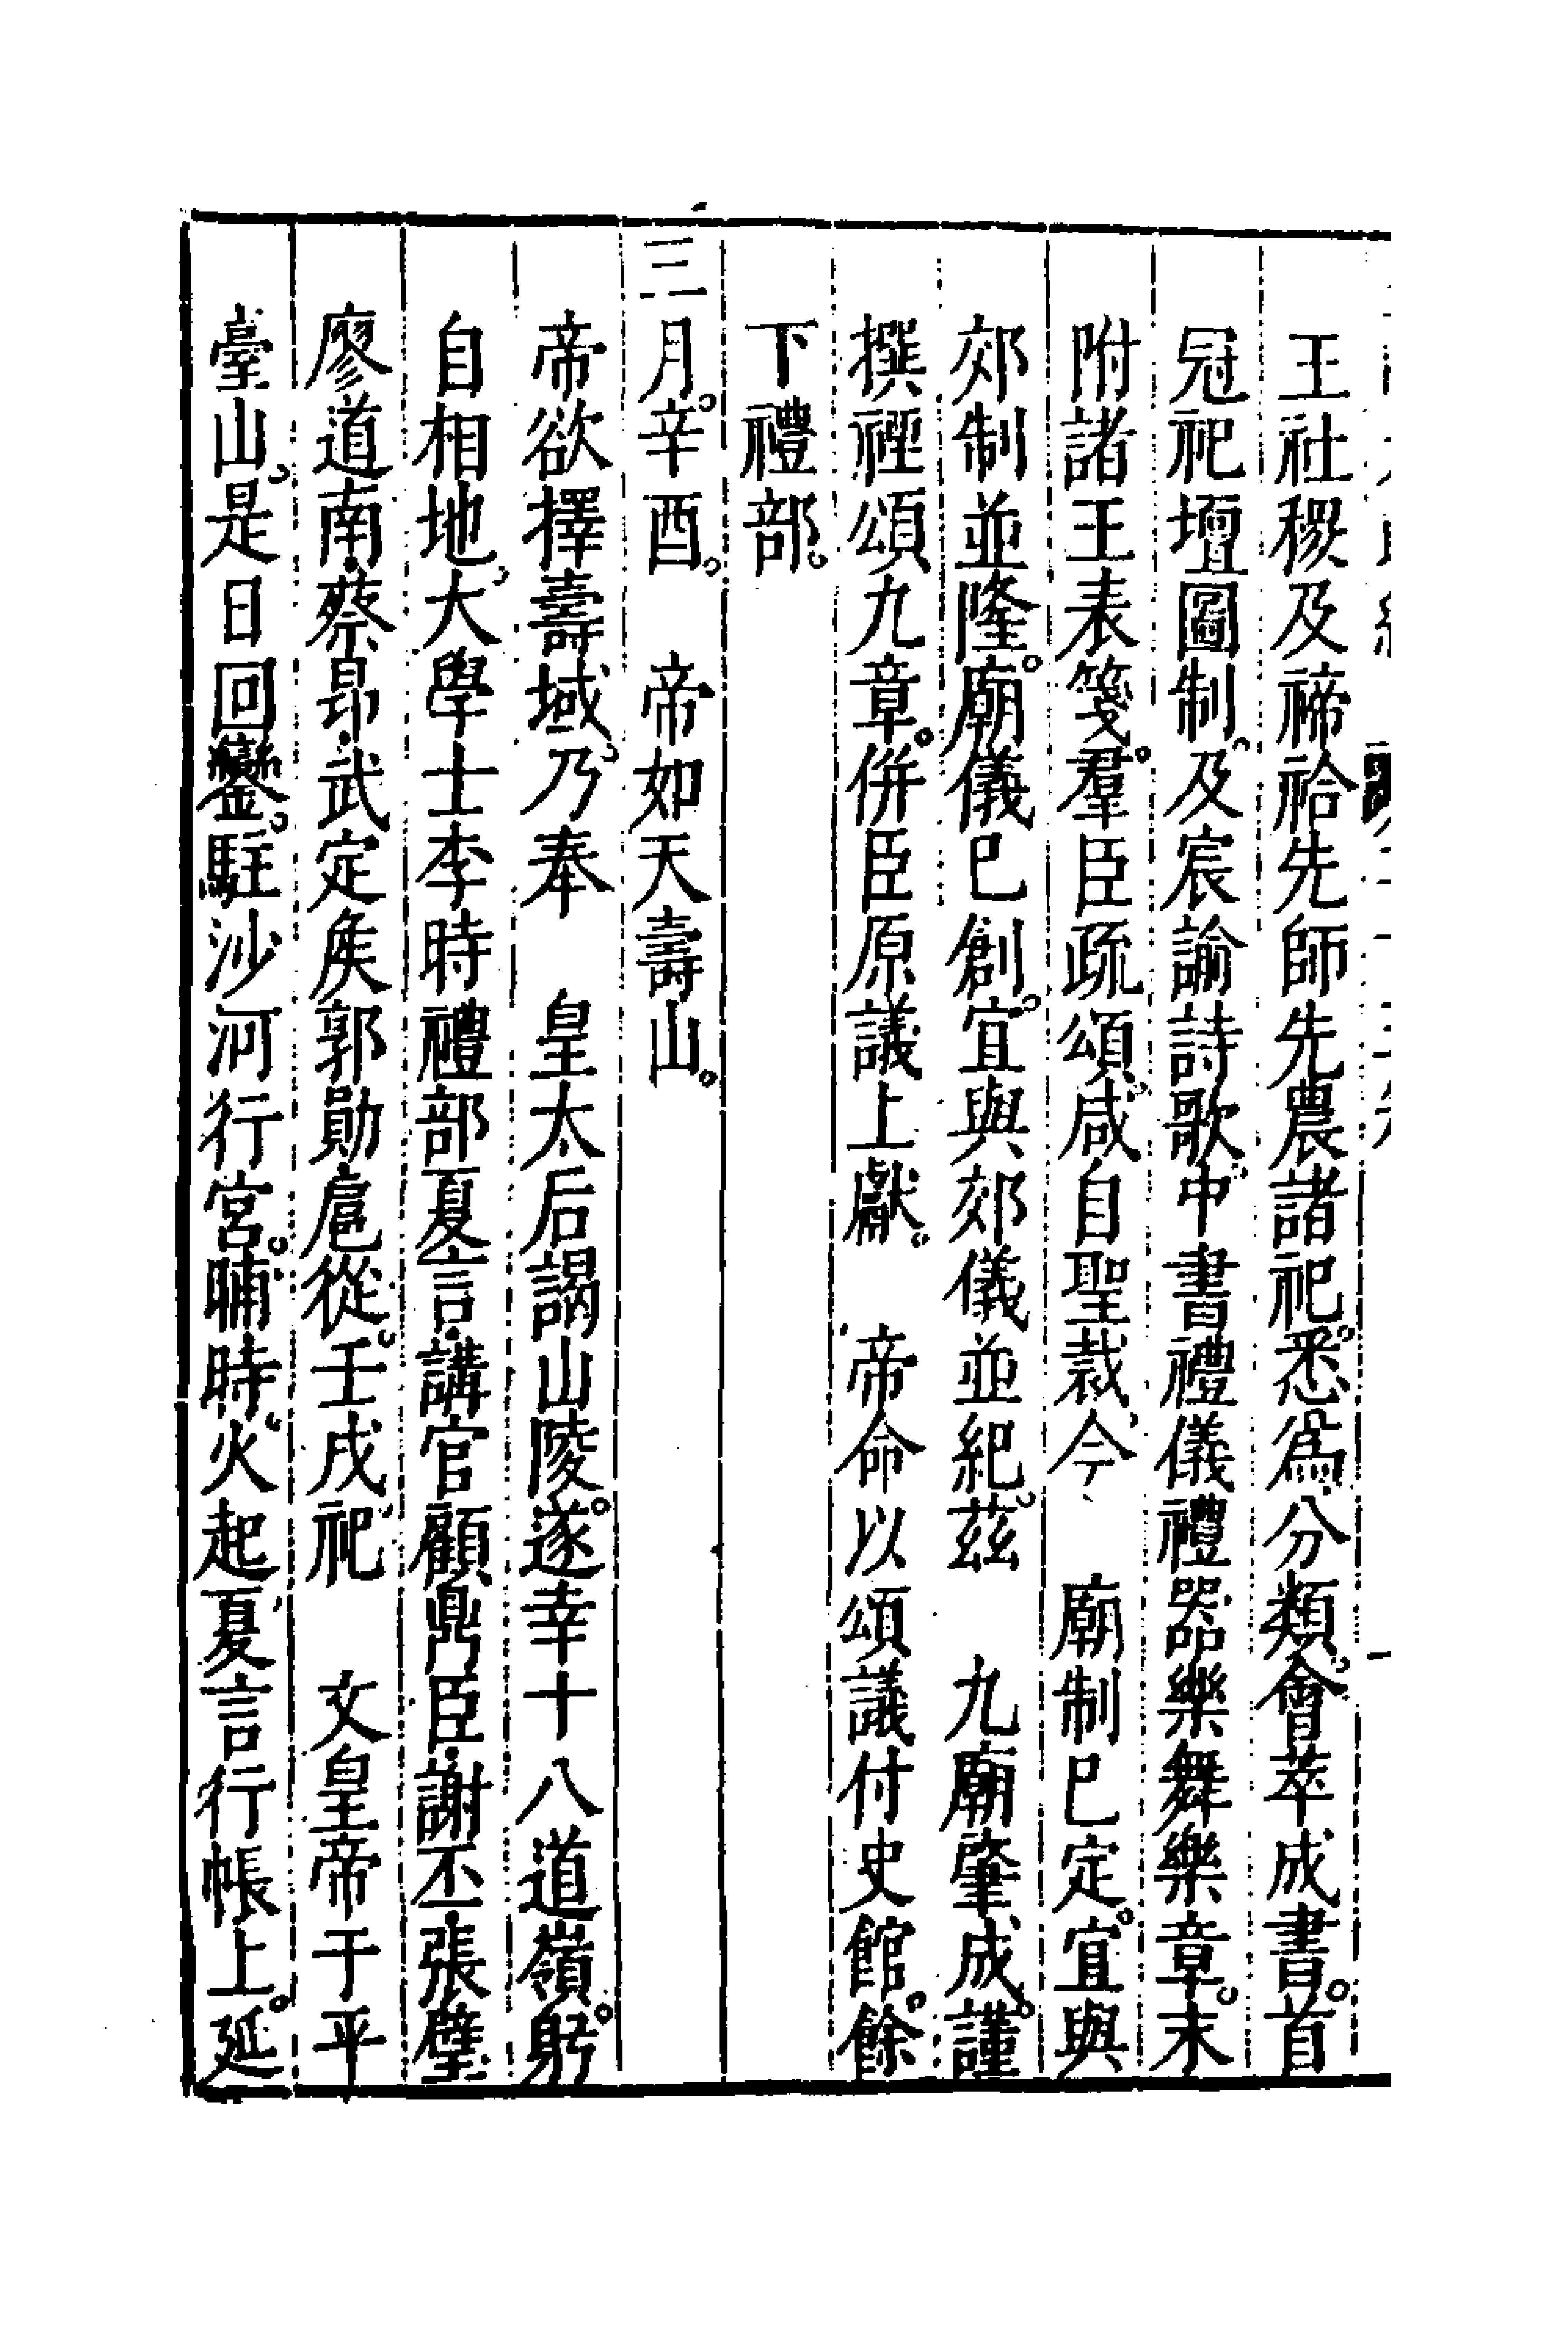 王社稷及禘祫先師先農諸祀。悉爲分類、會萃成書。首
冠祀壇圖制、及宸諭詩歌、中書禮儀禮器樂舞樂章、末
附諸王表箋。羣臣疏頌、咸自聖裁、今　廟制已定。宜與
郊制並隆。廟儀已創、宜與郊儀並紀、茲　九廟肇成。謹
撰禋頌九章。併臣原議上獻。　帝命以頌議付史館。餘
下禮部。
三月。辛酉。　帝如天壽山。
帝欲擇壽域、乃奉　皇太后謁山陵。遂幸十八道嶺。躬
自相地、大學士李時禮部夏言·講官顧鼎臣·謝丕·張璧
廖道南·蔡昂·武定矦郭勛扈從、壬戌、祀　文皇帝于平
臺山、是日回鑾。駐沙河行宮。晡時、火起夏言行帳上。延